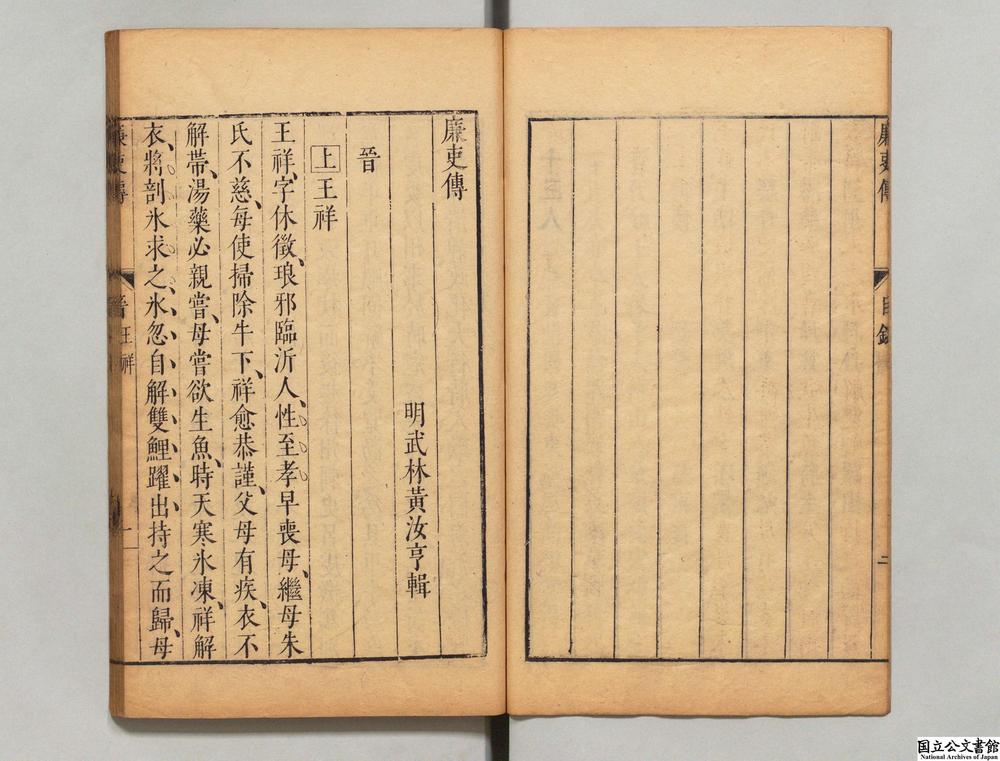 廉吏傳
目錄
二
廉吏傳
明武林黃汝亨輯
晉
上王祥
王祥、字休徵、琅邪臨沂人、性至孝早喪母、繼母朱
氏不慈、每使掃除牛下、祥愈恭謹、父母有疾、衣不
解帶、湯藥必親嘗、母嘗欲生魚、時天寒氷凍、祥解
衣、將剖氷求之、氷忽自解雙鯉躍出持之而歸、母
廉吏傳
晉王祥
一
国立公文書館
National Archives of Japan